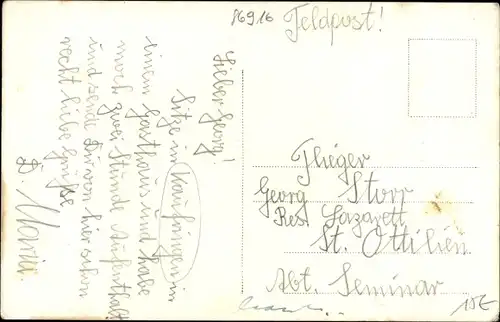 86916
Feldpost!
Lieber Georg!
Sitze in Kaufringen in
einem Gasthaus und habe
noch zwei Stunde Aufenthalt
und sende Dir von hier schon
recht liebe Grüße,
D. Maria.
Flieger
Georg Storr
Res. Lazarett
St. Ottilien
Abt. Seminar
15€